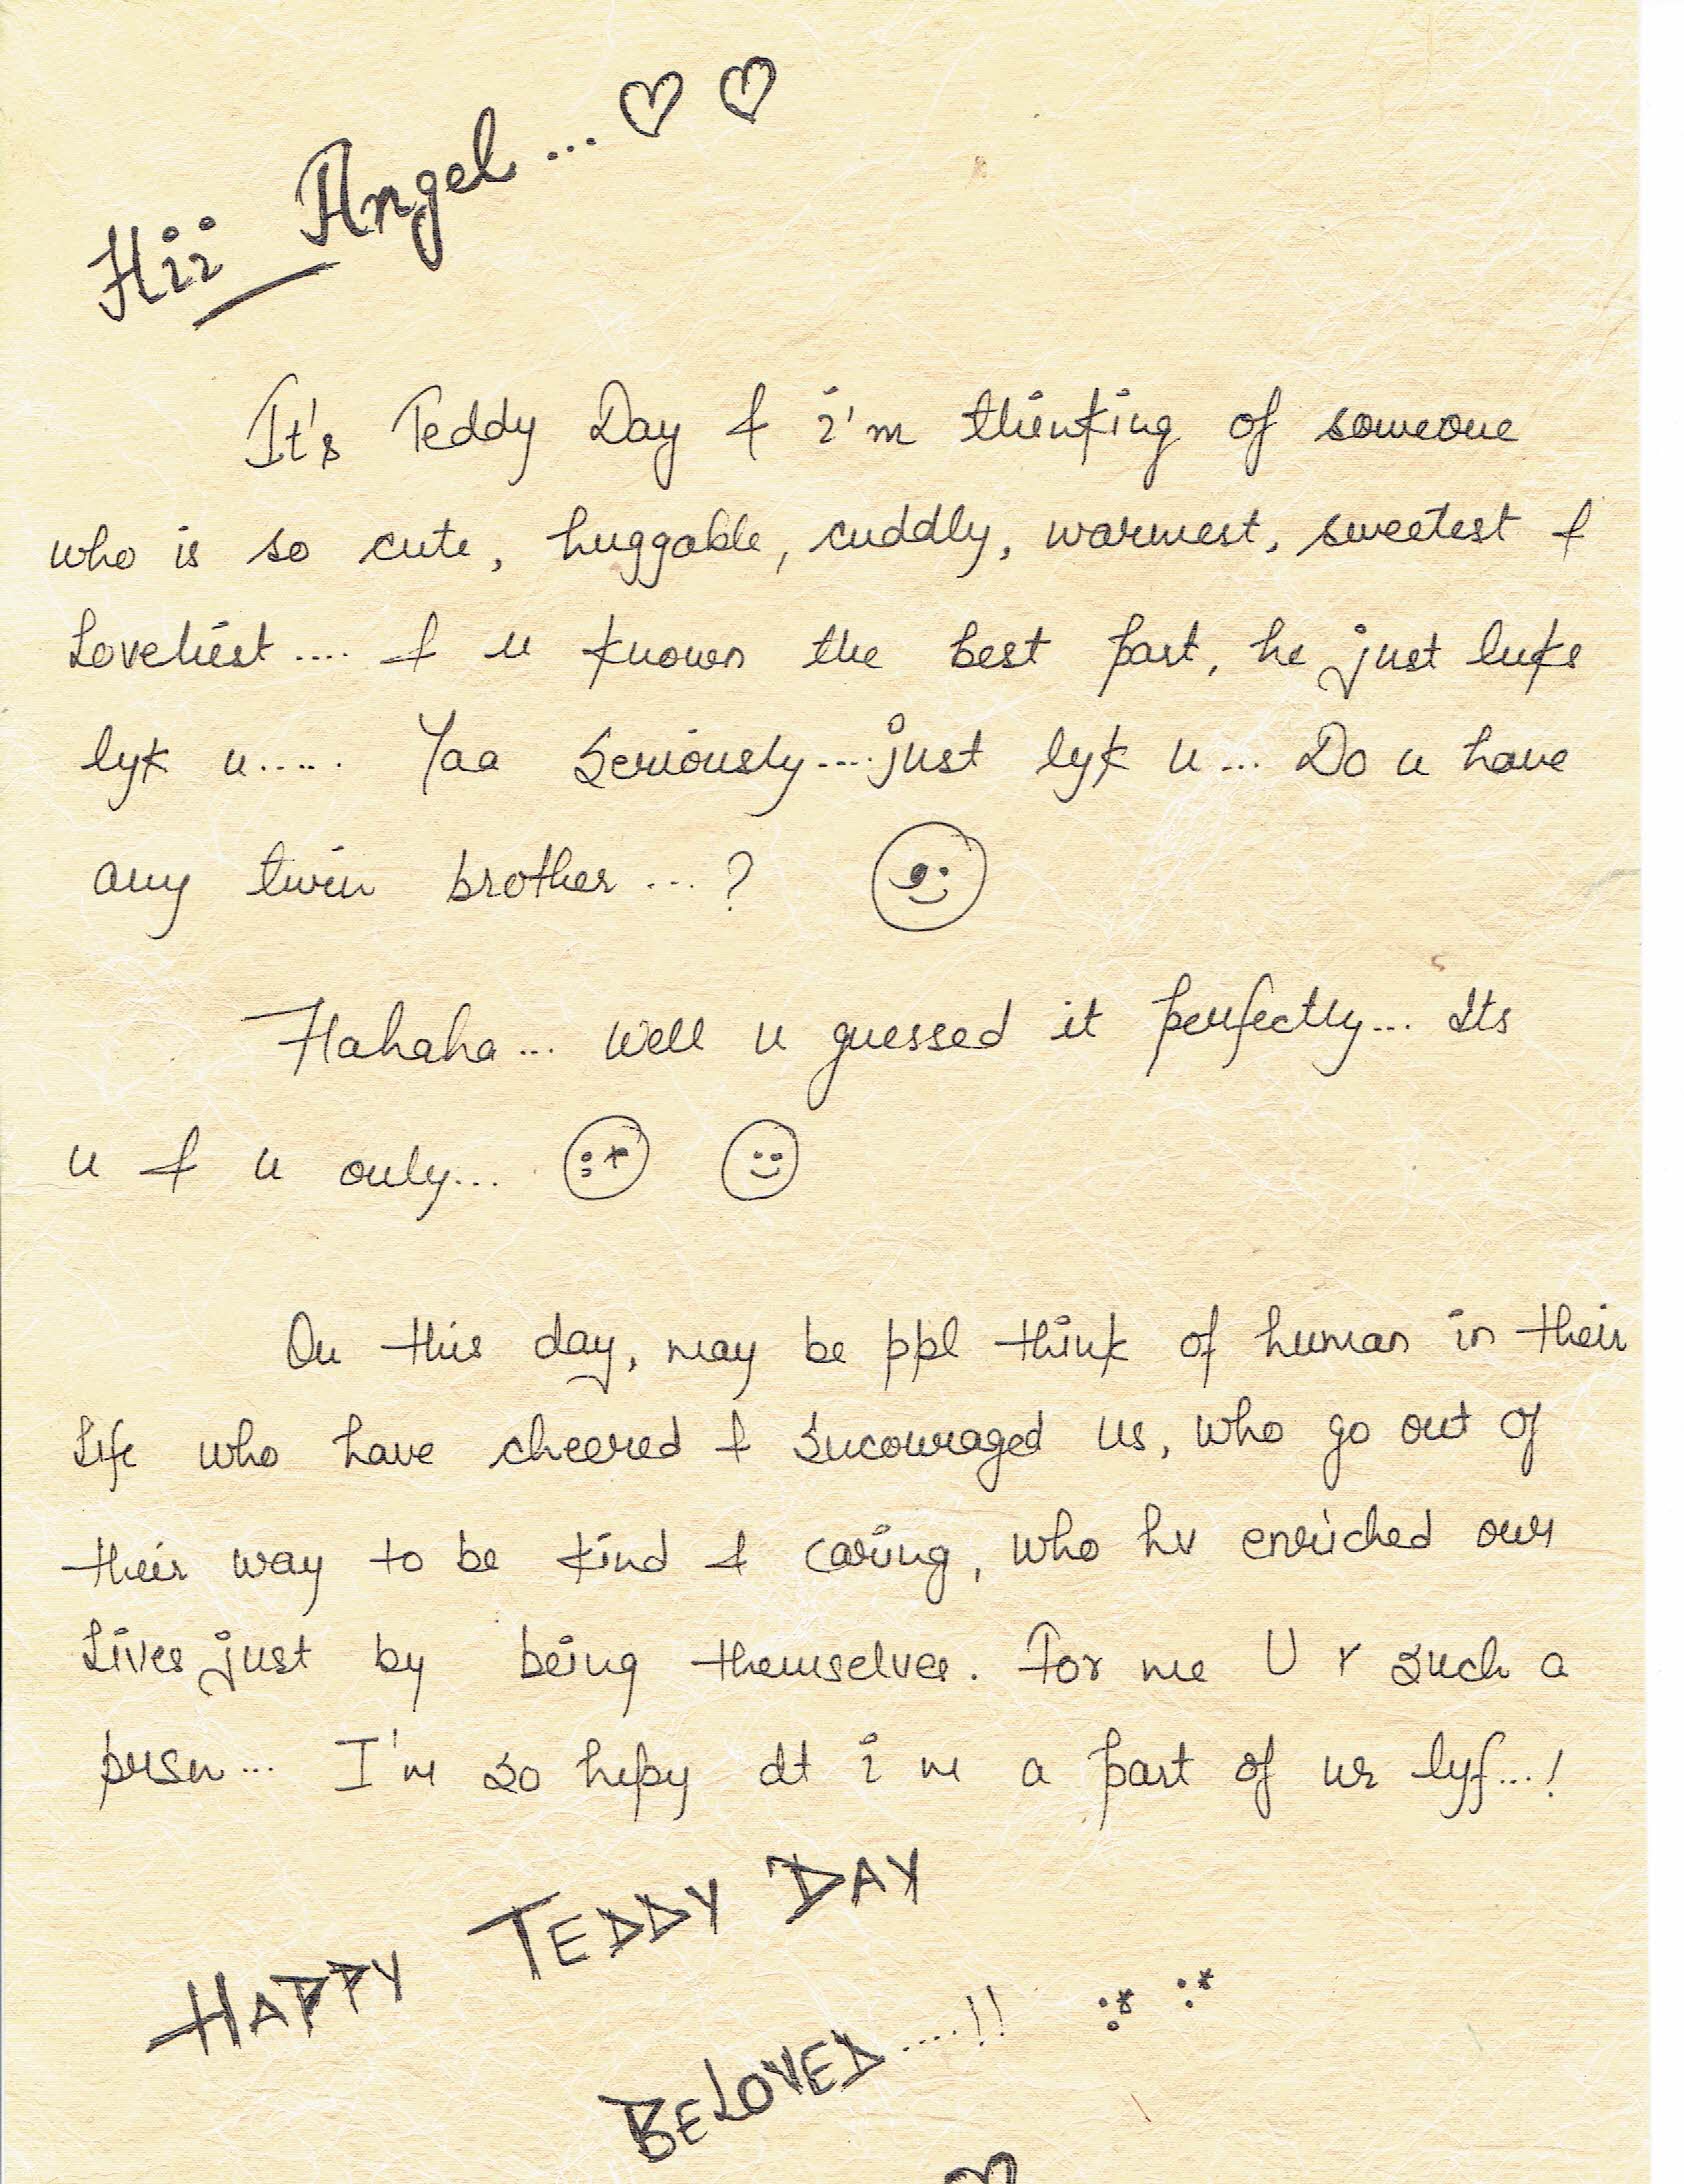 Hii Angel... ♡ ♡
It's Teddy Day & i'm thinking of someone
who is so cute, huggable, cuddly, warmest, sweetest &
Loveliest.... & u knows the best part, he just luks
lyk u..... Yaa Seriously....just lyk u... Do u have
any twin brother...?
Hahaha... Well u guessed it perfectly... Its
u & u only... :* :)
On this day, may be ppl think of human in their
Life who have cheered & Encouraged us, who go out of
their way to be kind & caring, who hv enriched our
Lives just by being themselves. For me U r such a
prsn... I'm so hpy dt i m a part of ur lyf...!
HAPPY TEDDY DAY
BELOVED....!! :* :*
♡